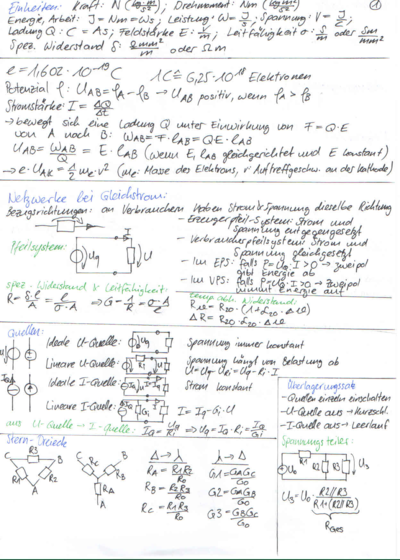 Einheiten: Kraft: N (kg·m/s²); Drehmoment: Nm (kg·m²/s²) ①
Energie, Arbeit: J = Nm = Ws; Leistung: W = J/s; Spannung: V = J/C;
Ladung Q: C = As; Feldstärke E: V/m; Leitfähigkeit σ: S/m oder Sm/mm²
Spez. Widerstand ρ: Ωmm²/m oder Ωm
e = 1,602·10⁻¹⁹C 1C ≙ 6,25·10⁻¹⁸ Elektronen
Potenzial φ: U_AB = φ_A - φ_B → U_AB positiv, wenn φ_A > φ_B.
Stromstärke: I = ΔQ/Δt
→ bewegt sich eine Ladung Q unter Einwirkung von F = Q·E
von A nach B: W_AB = F·l_AB = Q·E·l_AB
U_AB = W_AB/Q = E·l_AB (wenn E, l_AB gleichgerichtet und E konstant)
→ e·U_AK = ½ m_e·v² (m_e: Masse des Elektrons, v: Auftreffgeschw. an der Kathode)
Netzwerke bei Gleichstrom:
Bezugsrichtungen: an Verbrauchern haben Strom & Spannung dieselbe Richtung
- Erzeugerpfeil-System: Strom und
Spannung entgegengesetzt
Pfeilsystem:
I
U_q
U
- Verbraucherpfeilsystem: Strom und
Spannung gleichgesetzt
- Im EPS: falls P=U·I>0 → Zweipol
gibt Energie ab
- Im VPS: falls P=U·I>0 → Zweipol
nimmt Energie auf
spez. Widerstand & Leitfähigkeit:
R = ρ·l/A = l/σ·A ⇒ G = 1/R = σ·A/l
Temp. abh. Widerstand:
R_ϑ = R₂₀·(1+α₂₀·Δϑ)
ΔR = R₂₀·α₂₀·Δϑ
Quellen:
Ideale U-Quelle: Spannung immer konstant
Lineare U-Quelle: Spannung hängt von Belastung ab
U = U_q - U_Ri = U_q - Ri·I
Ideale I-Quelle: Strom konstant
Lineare I-Quelle: I = I_q - G_i·U
aus U-Quelle → I-Quelle: I_q = U_q/R_i ⇒ U_q = I_q·R_i = I_q/G_i
Überlagerungssatz
- Quellen einzeln einschalten
- U-Quelle aus → Kurzschl.
- I-Quelle aus → Leerlauf
Stern-Dreieck
C R3 B
R1 R2
A
C B
R_C R_B
R_A
A
Δ → ⅄
R_A = R1R2/R0
R_B = R2R3/R0
R_C = R1R3/R0
⅄ → Δ
G1 = G_AG_C/G0
G2 = G_AG_B/G0
G3 = G_BG_C/G0
Spannungsteiler:
U0 R1 R2 R3 U3
U3 = U0 · R2//R3 / R1+(R2//R3)
R_ges